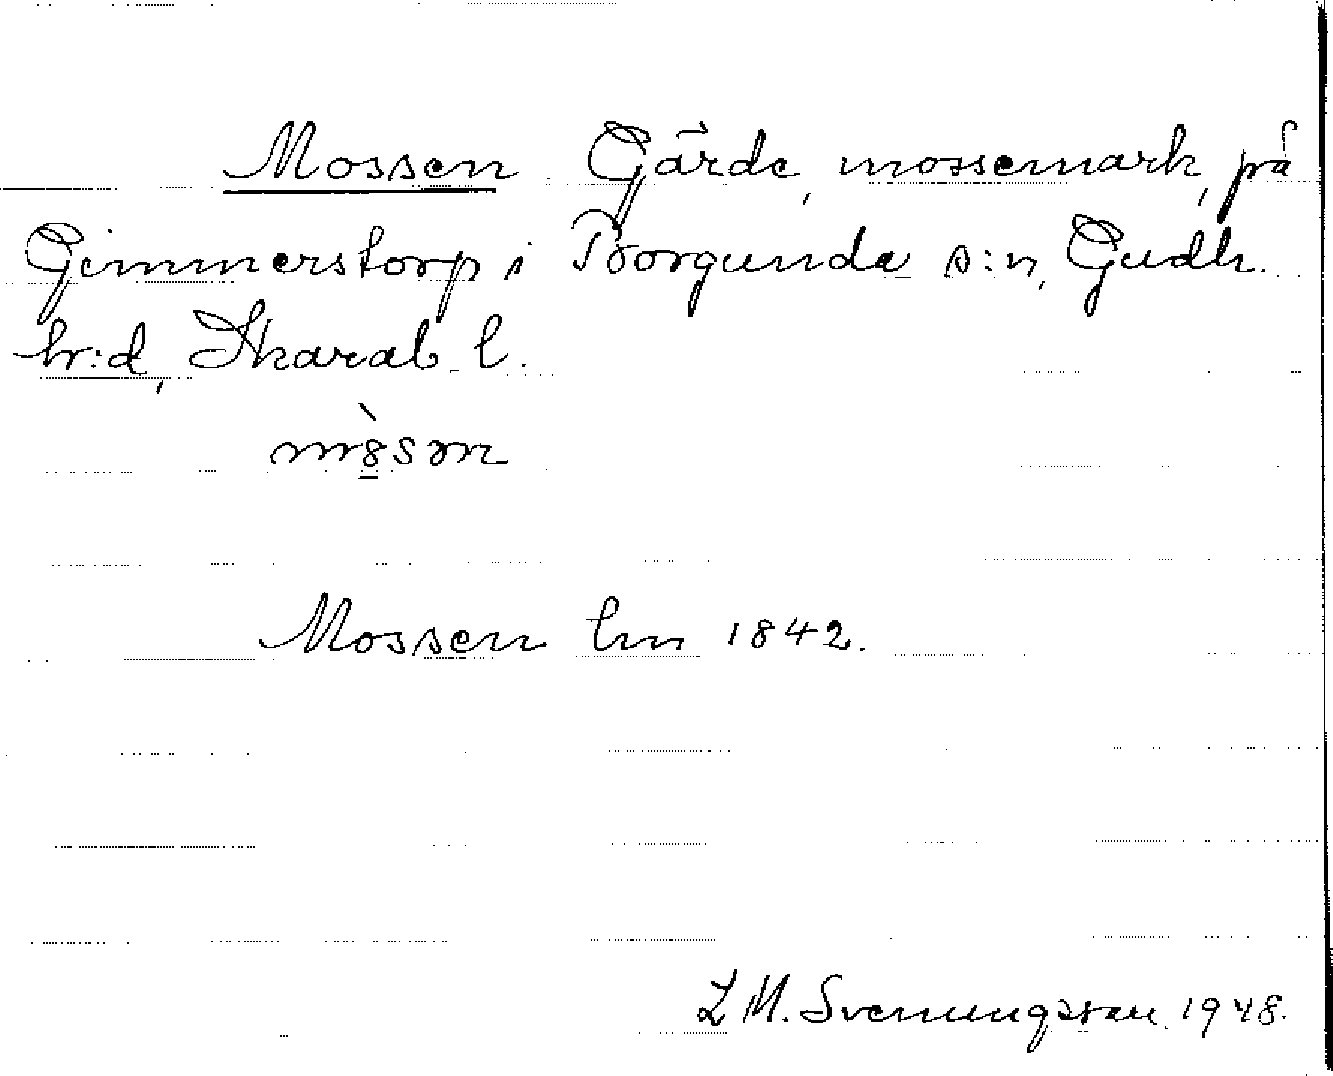 Mossen Gärde, mossemark, på
Gimmerstorp i Borgunda s:n, Gudh.
hr:d, Skarab. l.
Mossen Lm 1842.
L M. Svenungsson 1948.